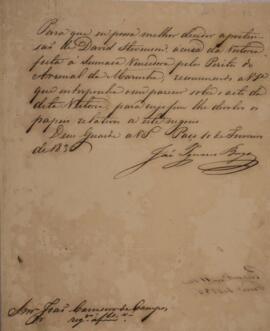 Para que se possa melhor decidir a preten-
são de David Stevenson, acerca da Vistoria
feita a Sumaca Vencedora pelo Perito do
Arsenal da Marinha, recommendo a VSª
que interponha seu parecer sobre o acto da
dita Vistoria, para cujo fim lhe devolvo os
papeis relativos a este negocio.
Deos Guarde a VS. Paço 10 de Fevereiro
de 183
José Ignacio Borges
Snr. João Carneiro de Campos